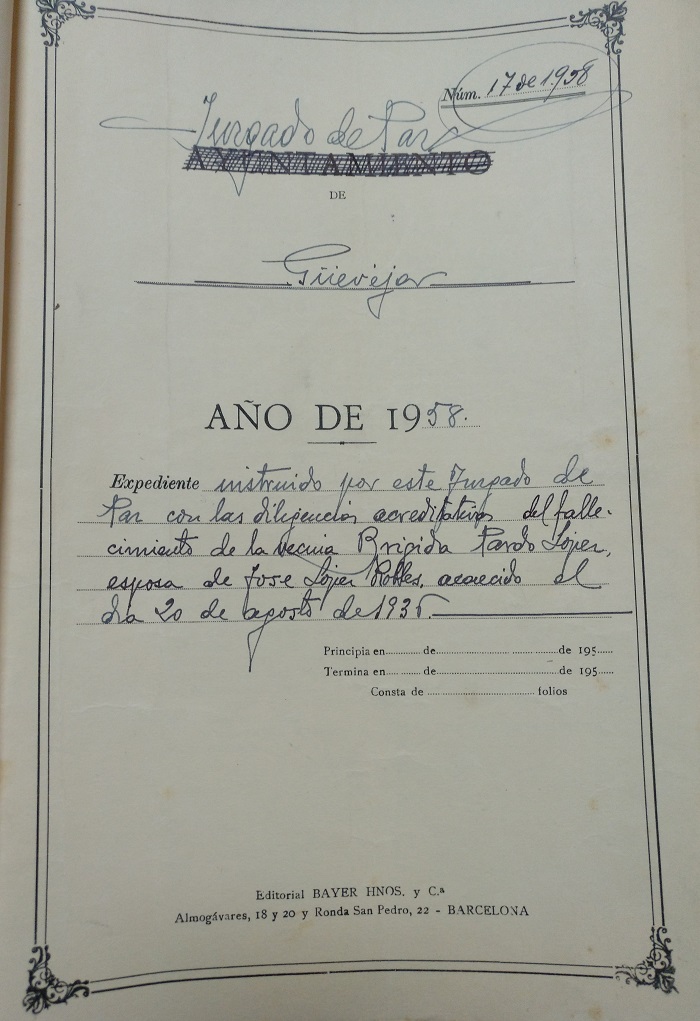 Núm. 17 de 1.958
Juzgado de Paz
AYUNTAMIENTO
DE
Güevéjar
AÑO DE 1958.
Expediente instruido por este Juzgado de
Paz con las diligencias acreditativas del falle-
cimiento de la vecina Brigida Pardo López,
esposa de Jose López Robles, acaecido el
dia 20 de agosto de 1936.
Principia en de de 195
Termina en de de 195
Consta de folios
Editorial BAYER HNOS. y C.ª
Almogávares, 18 y 20 y Ronda San Pedro, 22 - BARCELONA